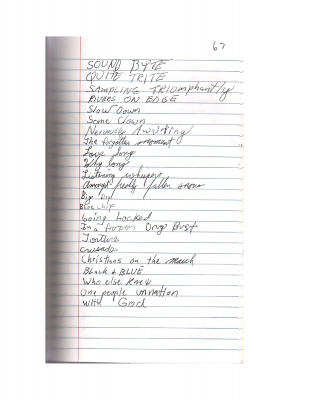 67
SOUND BYTE
QUITE TRITE
SAMPLING TRIUMPHantly
RUBES ON EDGE
Slow Down
Some Clown
Nervously Awaiting
The forgotten moment
Love song
Why long
Listening whispers
Amongst freshly fallen snow
Big Dip
Blue chip
Going Locked
In a frozen Drug Bust
Torture
Crusade
Christians on the march
Black & BLUE
Who else KNEW
One people
With God